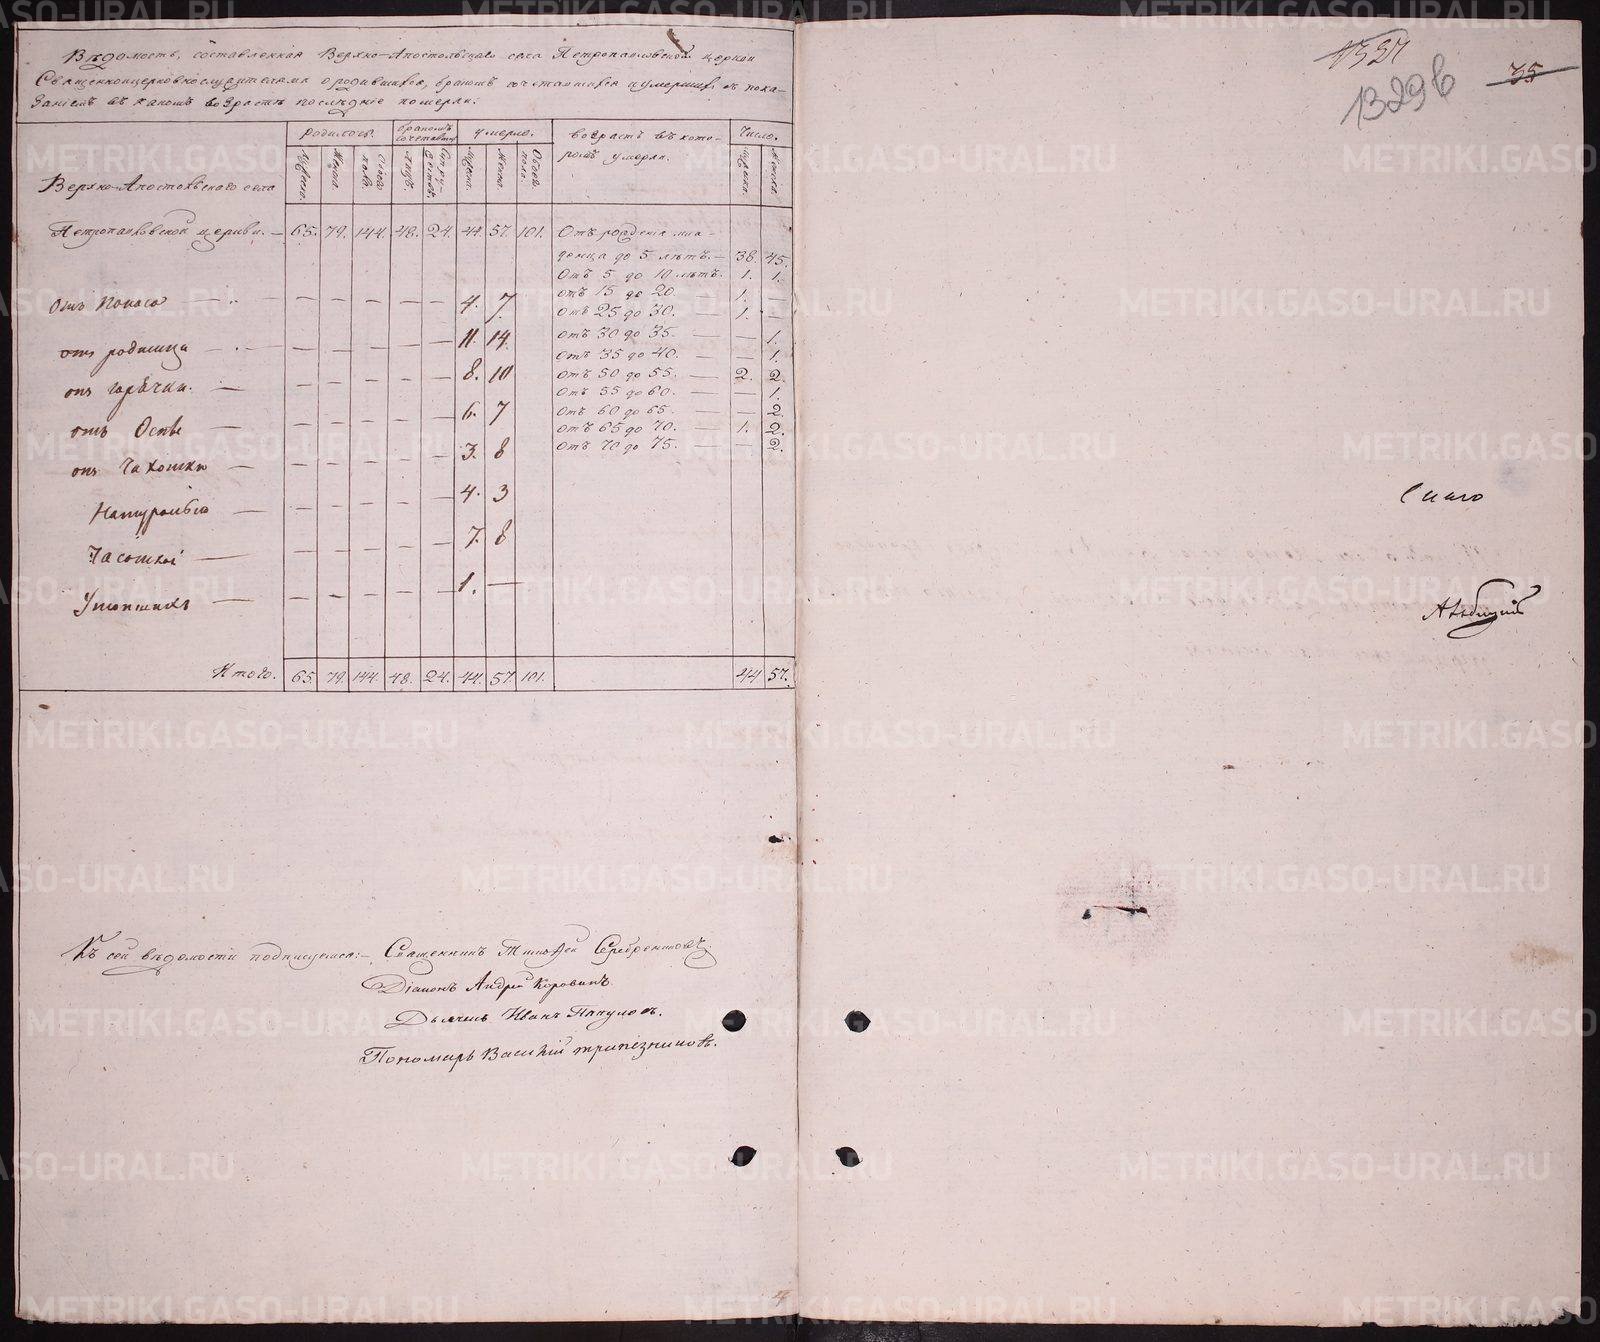 Вѣдомость, составленная Верхко-Апостольскаго села Петропавловской церкви
Священноцерковнослужителями о родившихся, бракомъ сочетавшихся и умершихъ съ пока-
заніемъ въ какомъ возрастѣ послѣдніе померли.
родилось. бракомъ сочетавш. умерло. возрастъ въ кото- Число.
ромъ умерли.
Мужеска. Женска. Обоего пола. Лицъ. Супру-жествъ. Мужеска. Женска. Обоего пола. Мужска. Женска.
Верхко-Апостольскаго села
Петропавловской церкви. — 65. 79. 144. 48. 24. 44. 57. 101. Отъ рожденія мла-
денца до 5 лѣтъ. — 38. 45.
Отъ 5 до 10 лѣтъ. 1. 1.
отъ 15 до 20. — 1. —
отъ 25 до 30. — 1. —
отъ 30 до 35. — — 1.
отъ 35 до 40. — — 1.
отъ 50 до 55. — 2. 2.
отъ 55 до 60. — — 1.
отъ 60 до 65. — — 2.
отъ 65 до 70. — 1. 2.
отъ 70 до 75. — — 2.
Отъ Поноса — — — — — — 4. 7.
отъ родимца — — — — — — 11. 14.
отъ горѣчки. — — — — — — 8. 10
отъ Оспы — — — — — — 6. 7
отъ Чахотки — — — — — — 3. 8
Натурально — — — — — — 4. 3
Чахоткой — — — — — — 7. 8
Утопшихъ — — — — — — 1. —
Итого. 65. 79. 144. 48. 24. 44. 57. 101. 44 57.
Къ сей вѣдомости подписуемся: — Священникъ Тимоѳей Серебренниковъ.
Діаконъ Андрей Коровинъ.
Дьячекъ Иванъ Пакуловъ.
Пономарь Василій трапезниковъ.
1327
1329в
35
METRIKI.GASO-URAL.RU